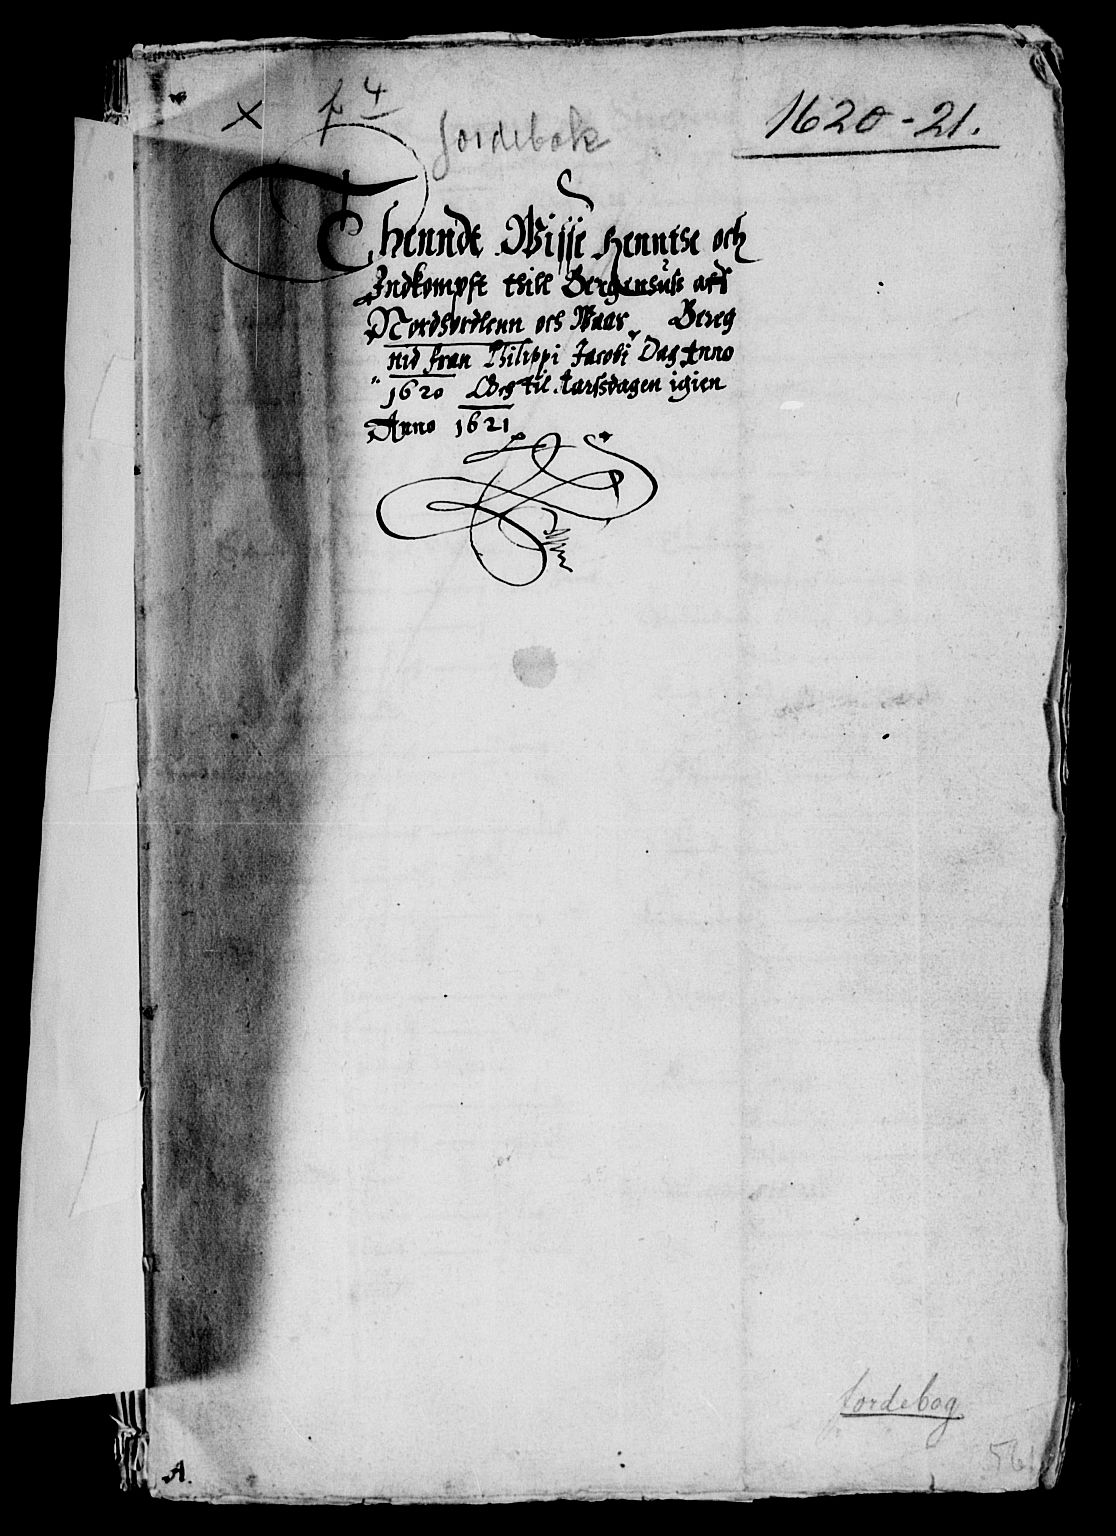 x p 4
Jordebok
1620-21.
Thenndt Wisse Henntse och
Indkompst thill Bergenhus aff
Nordhordlenn och Waar, Bereg
nid fran Philippi Jacobi Dag Anno
1620 Och til Aarsdagen igien
Anno 1621
Jordebog
561
A.